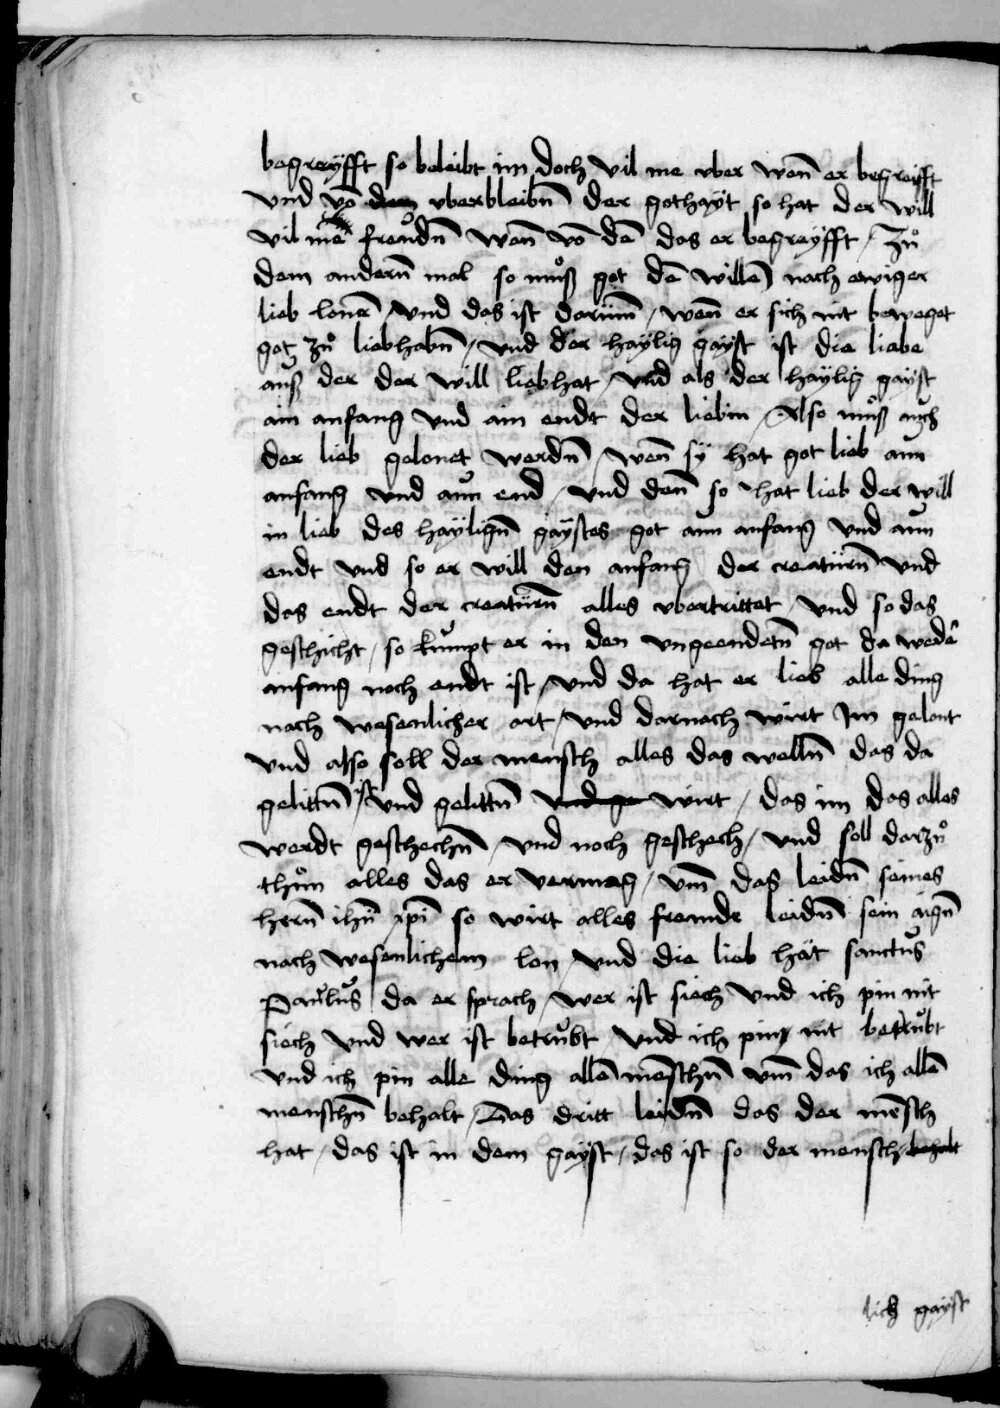 begreyfft so beleibt im doch vil me vber wen̄ er begreyfft
vnd vō dem vberbleibn̄ der gothayt so hat der will
vil me freůdn̄ wen̄ vō dē das er begreyfft / Zů
dem andern̄ mol so můß got dē willē nach ewiger
lieb lonen̄ / vnd das ist darüm̄ / wen̄ er sich nit beweget
got zů liebhabn̄ / vnd der haÿlig gaÿst ist die liebe
auß der der will liebhat / vnd als der haÿlig gaÿst
ain anfang vnd ain endt der liebin / Also můß auch
der lieb gelonet werdn̄ / wen̄ sÿ hat got lieb ann
anfang vnd ann end / vnd den̄ so hat lieb der will
in lieb des haÿlign̄ gaÿstes got ann anfang vnd ann
endt vnd so er will den anfang der creatürn̄ vnd
das endt der creatürn̄ alles vbertrittet / vnd so das
geschicht / so kumpt er in den vngeendetn̄ got da wedē
anfang noch endt ist / vnd da hat er lieb alle ding
nach wesenlicher art / vnd darnach wirt Im gelont
vnd also soll der mensch alles das welln̄ das da
gelittn̄ ist vnd gelittn̄ vnd ge wirt / das im das alles
werdt geschechn̄ / vnd noch geschech / vnd soll darzů
thůn alles das er vermag / vm̄ das leidn̄ seines
hern̄ ihū xpī so wirt alles fremde leidn̄ sein aign̄
nach wesenlichem lon / vnd die lieb hät sanctus
Paulus da er sprach / wer ist siech vnd ich pin nit
siech vnd wer ist betrůbt / vnd ich pin nit betrůbt
vnd ich pin alle ding allē mēschn̄ vm̄ das ich allē
menschn̄ behalt / Das dritt leidn̄ das der mēsch
hat / das ist in dem gaÿst / das ist so der mensch behalt
lich gaÿst